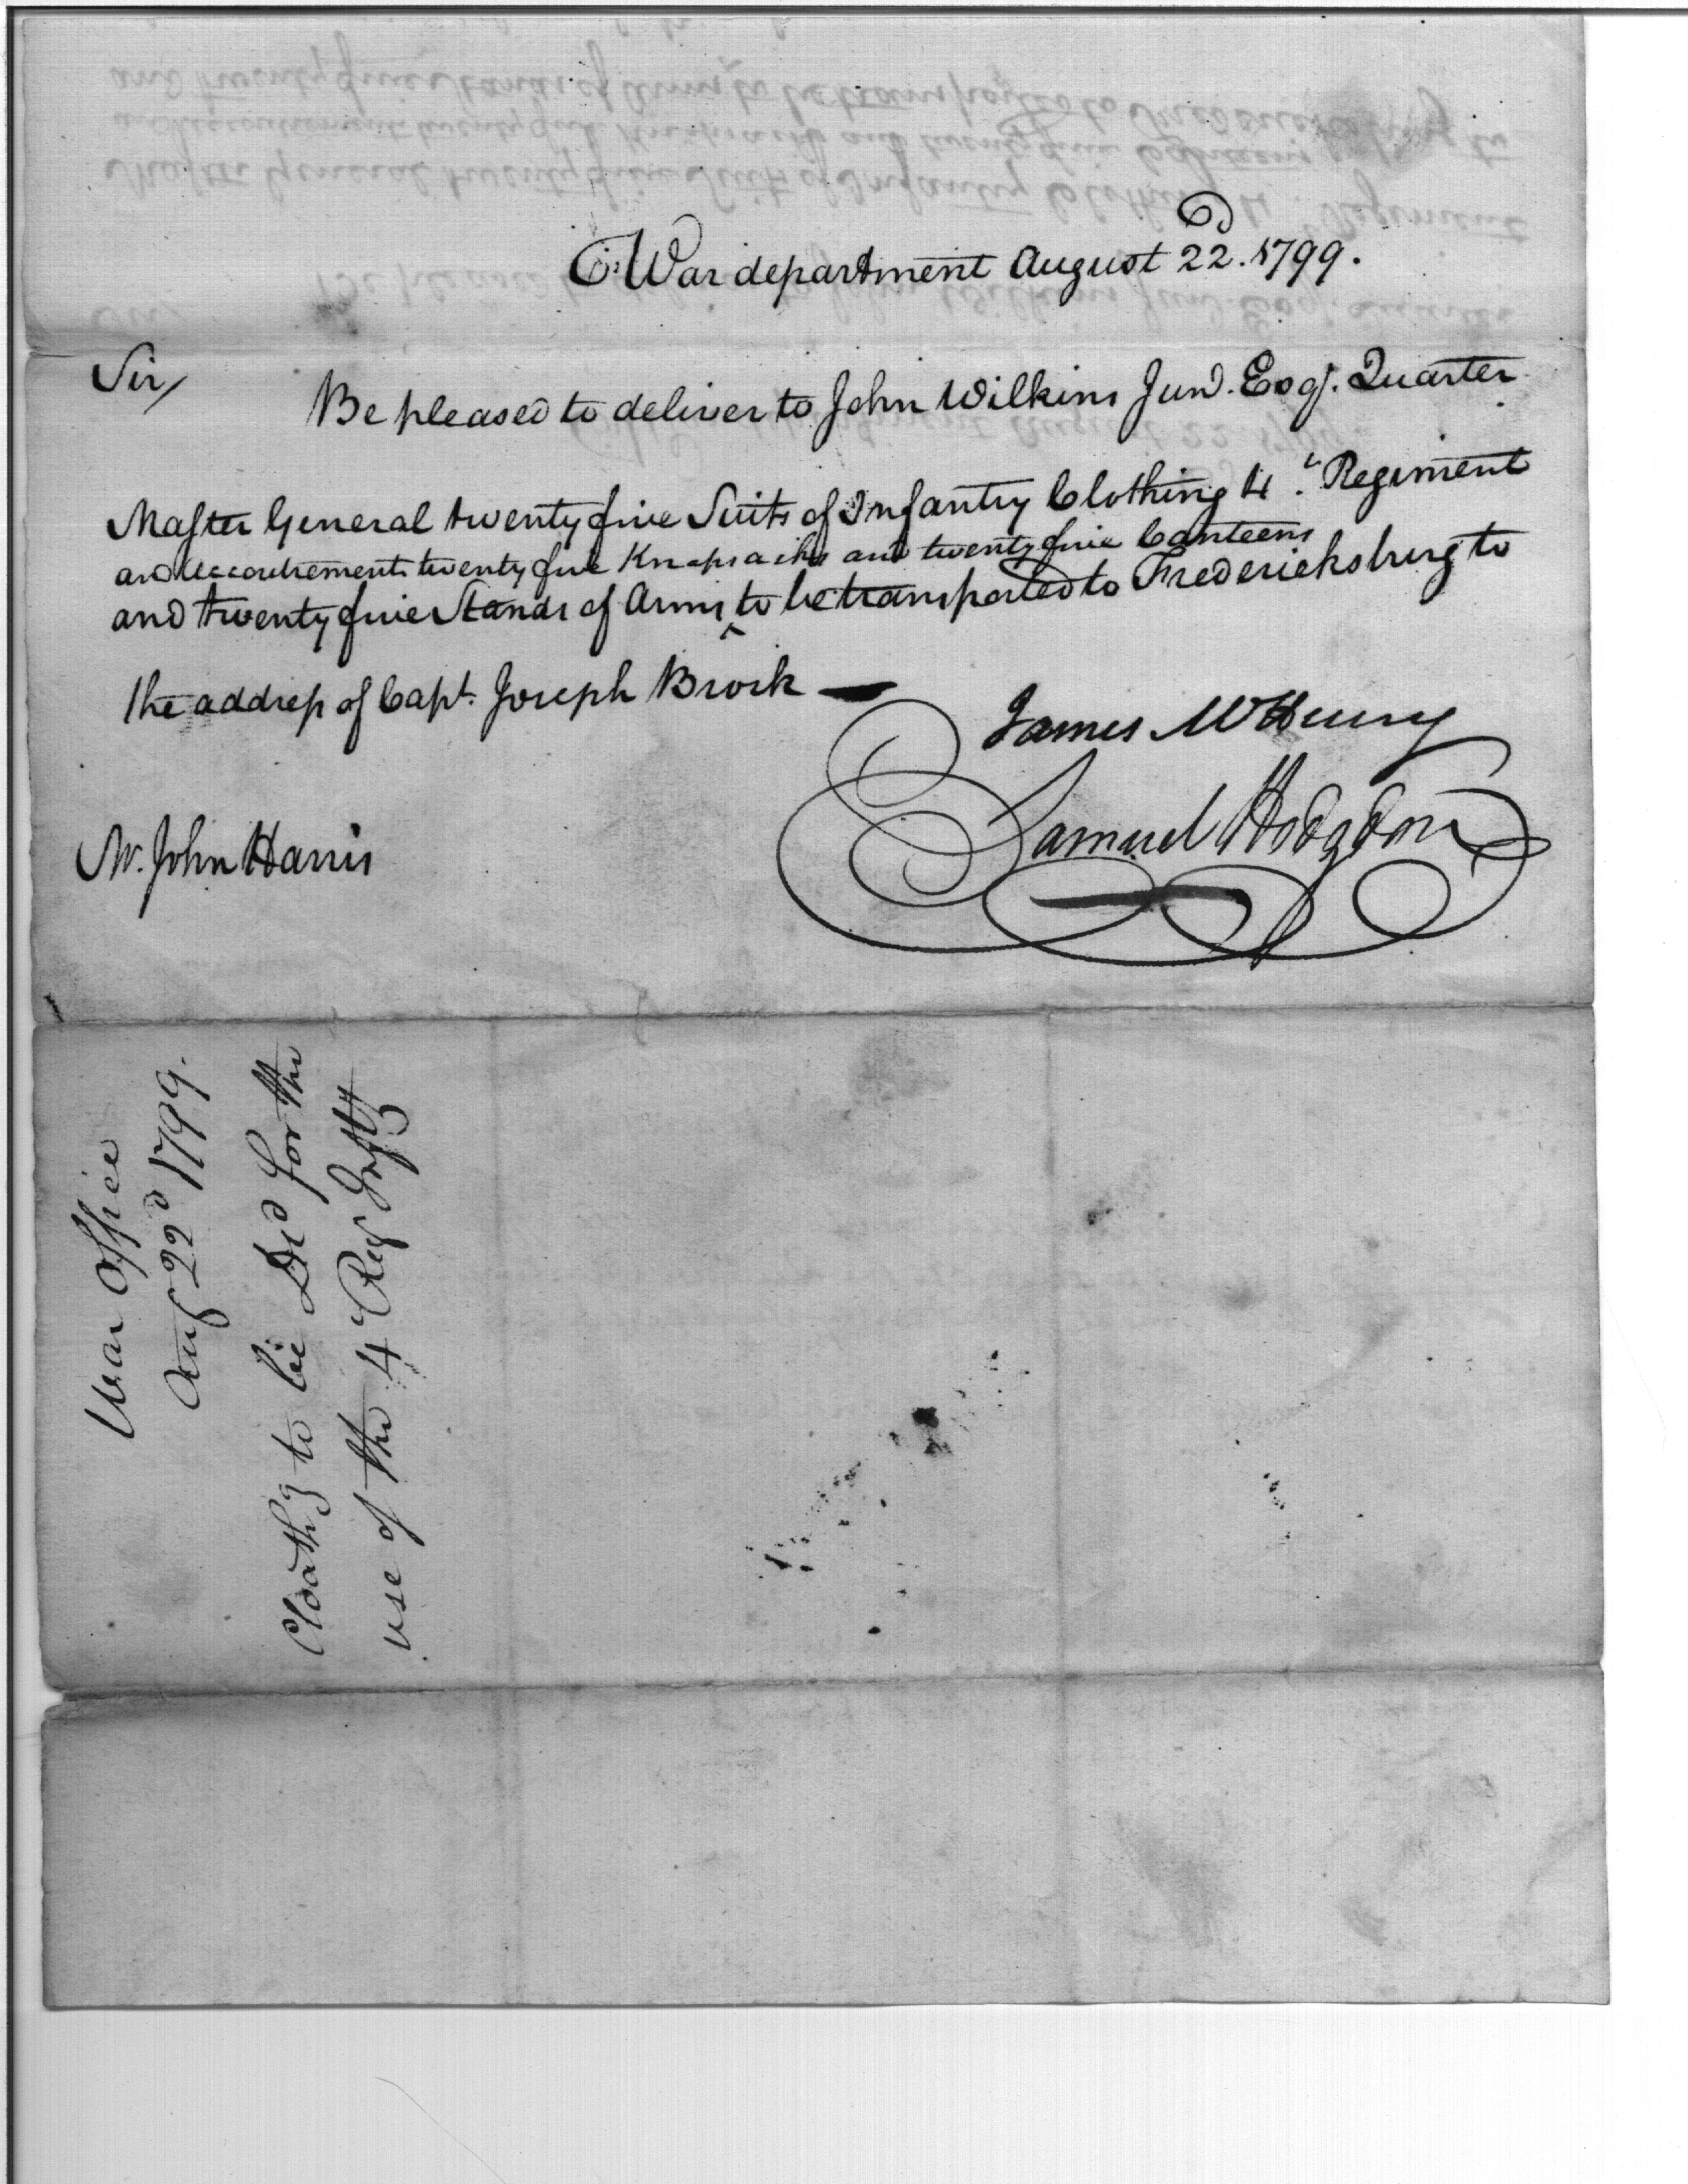 War department August 22d. 1799.
Sir/
Be pleased to deliver to John Wilkins Junr. Esqr. Quarter
Master General twenty five Suits of Infantry Clothing 4t. Regiment
and twenty five Stands of Arms ^ and accoutrements twenty five Knapsacks and twenty five Canteens to be transported to Fredericksburg to
the address of Capt. Joseph Brock —
James McHenry
Samuel Hodgdon
Mr. John Harris
War Office
Aug 22d 1799.
Cloathg to be Dd for the
use of the 4 Reg Infty